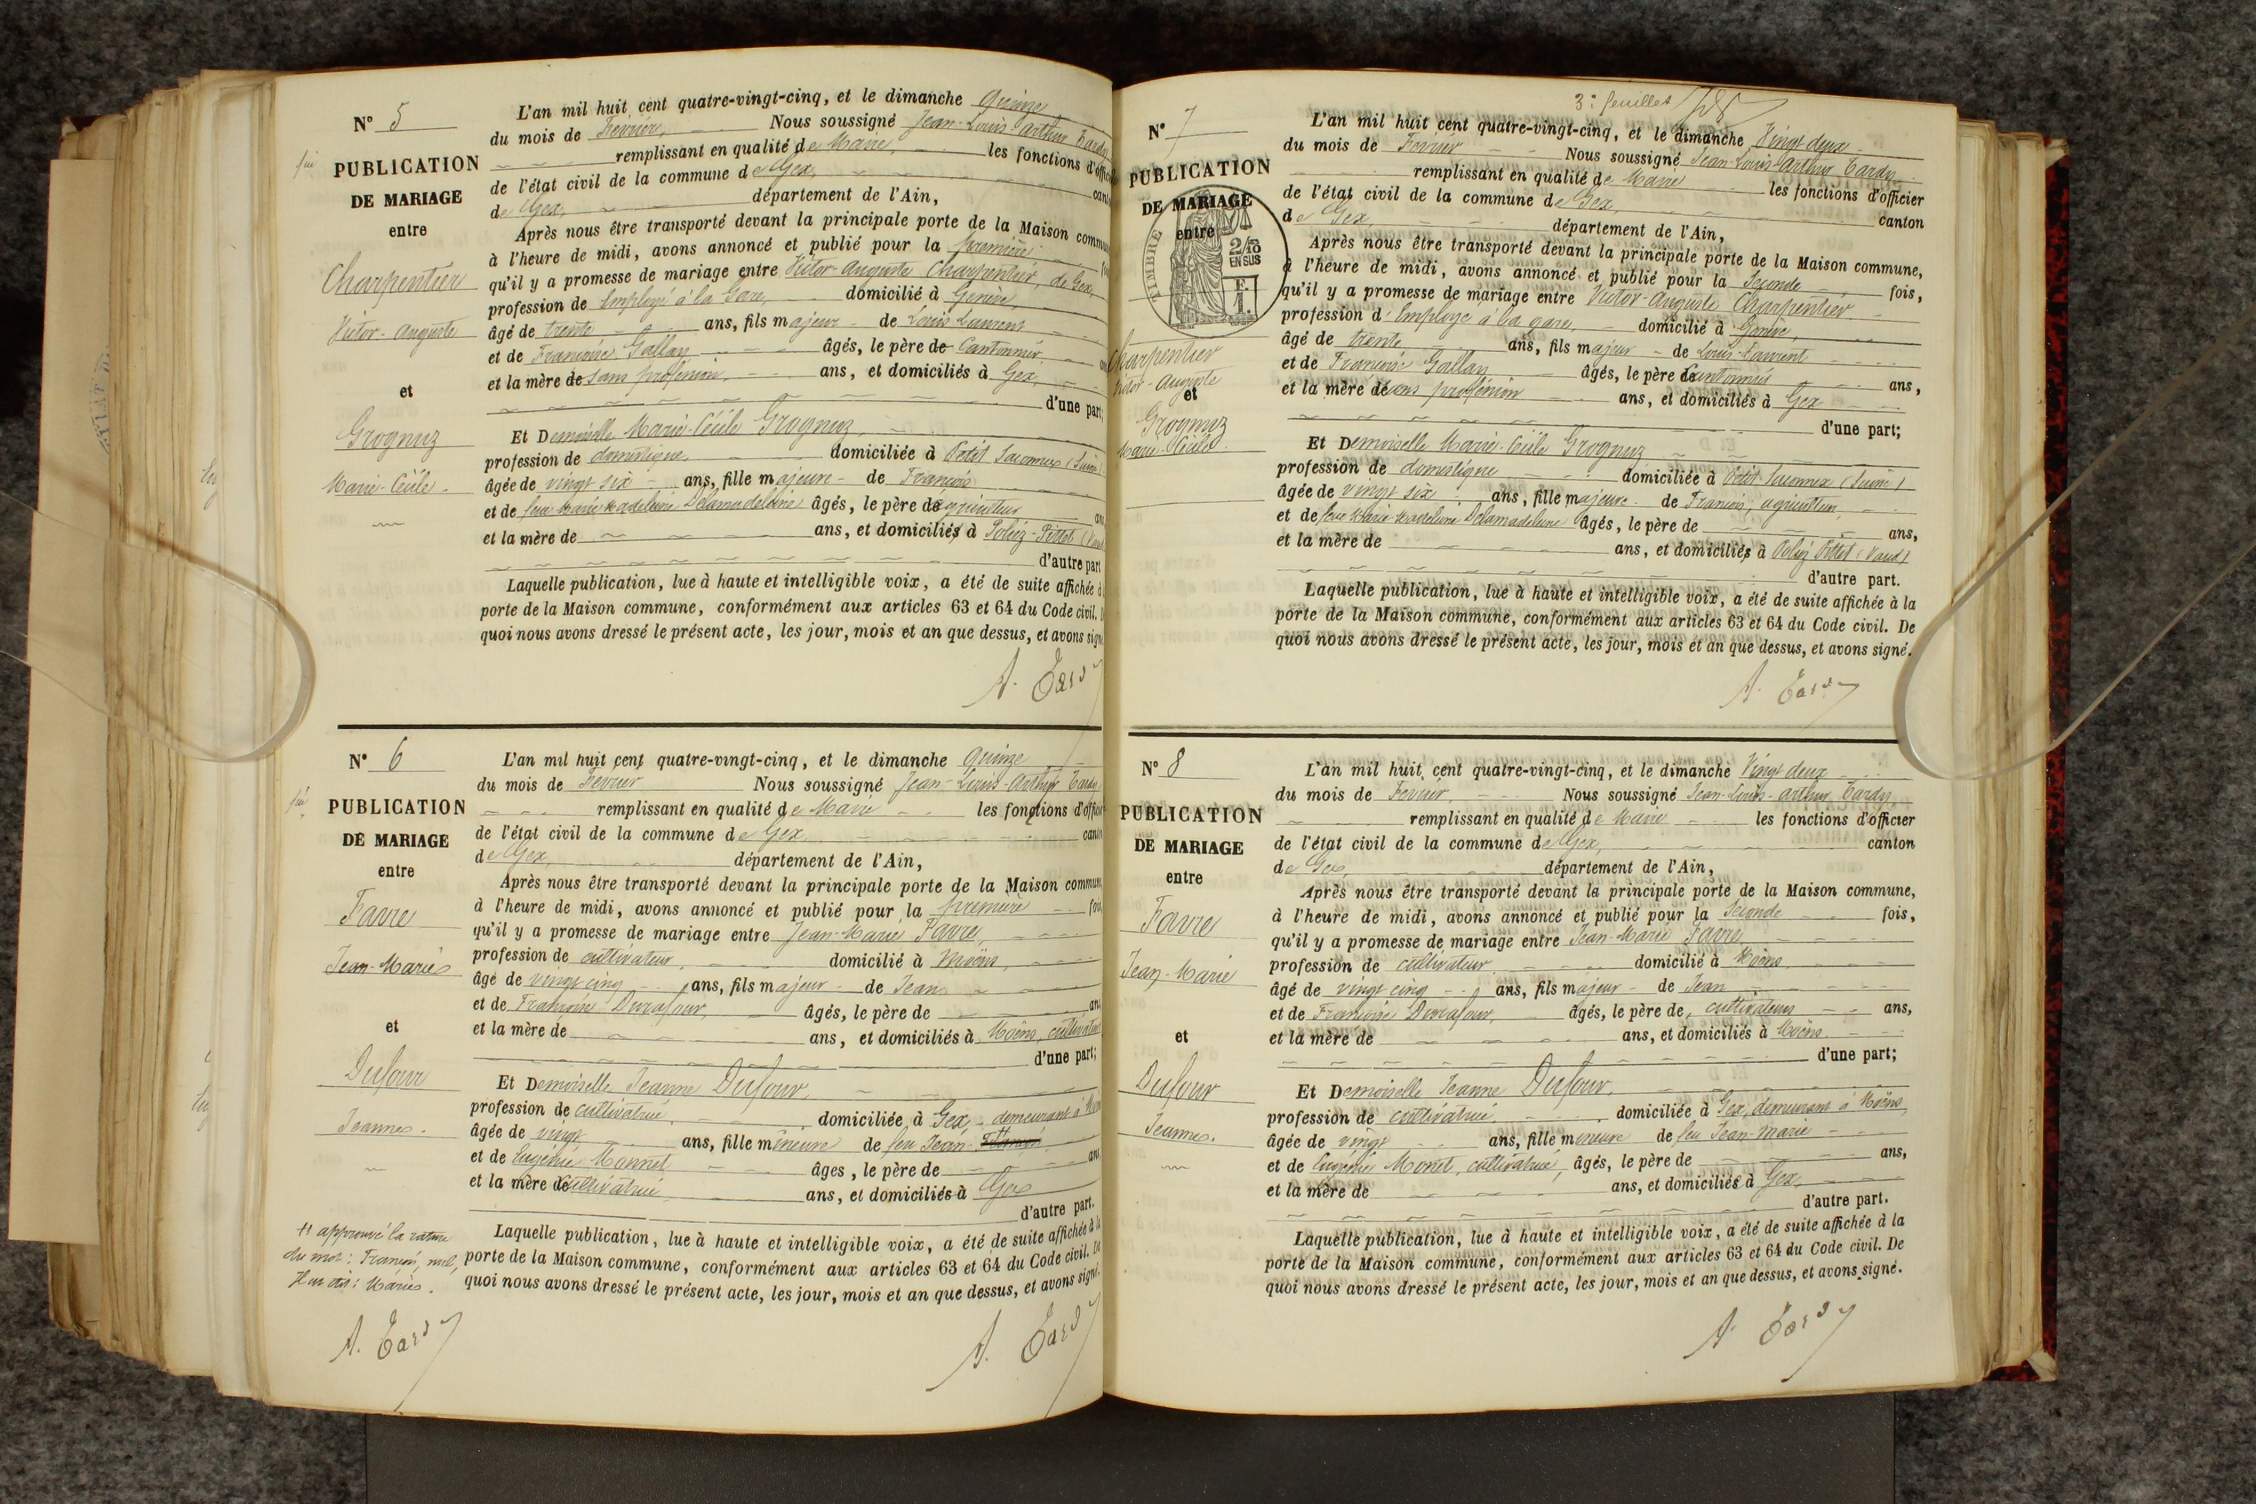 N° 5
PUBLICATION
DE MARIAGE
entre
Charpentier
Victor-Auguste
et
Grognuz
Marie-Cécile
L'an mil huit cent quatre-vingt-cinq, et le dimanche Quinze
du mois de Février, Nous soussigné Jean-Louis-Arthur Tardy
remplissant en qualité de Maire, les fonctions d'offici
de l'état civil de la commune de Gex, cant
de Gex, département de l'Ain,
Après nous être transporté devant la principale porte de la Maison commu
à l'heure de midi, avons annoncé et publié pour la première fo
qu'il y a promesse de mariage entre Victor-Auguste Charpentier, de Gex,
profession de Employé à la Gare, domicilié à Genève,
âgé de trente ans, fils majeur de Louis Laurent
et de Françoise Gallay âgés, le père de Cantonnier
et la mère de sans profession, ans, et domiciliés à Gex,
d'une part;
Et Demoiselle Marie-Cécile Grognuz,
profession de domestique, domiciliée à Petit Saconnex (Suisse)
âgée de vingt six ans, fille majeure de François
et de feue Marie Madeleine Delamadeleine âgés, le père de agriculteur an
et la mère de ans, et domiciliés à Poliez-Pittet (Vaud
d'autre part
Laquelle publication, lue à haute et intelligible voix, a été de suite affichée à
porte de la Maison commune, conformément aux articles 63 et 64 du Code civil. D
quoi nous avons dressé le présent acte, les jour, mois et an que dessus, et avons sign
A. Tardy
N° 6
PUBLICATION
DE MARIAGE
entre
Favre
Jean-Marie
et
Dufour
Jeanne.
L'an mil huit cent quatre-vingt-cinq, et le dimanche Quinze
du mois de Février Nous soussigné Jean-Louis-Arthur Tardy
remplissant en qualité de Maire les fonctions d'offici
de l'état civil de la commune de Gex canton
de Gex, département de l'Ain,
Après nous être transporté devant la principale porte de la Maison commun
à l'heure de midi, avons annoncé et publié pour la première foi
qu'il y a promesse de mariage entre Jean-Marie Favre,
profession de cultivateur, domicilié à Moëns,
âgé de vingt cinq ans, fils majeur de Jean
et de Françoise Duraffour, âgés, le père de ans
et la mère de ans, et domiciliés à Moëns, cultivateurs
d'une part;
Et Demoiselle Jeanne Dufour,
profession de cultivatrice, domiciliée à Gex, demeurant à Moëns
âgée de vingt ans, fille mineure de feu Jean-
et de Eugénie Monnet âgés, le père de ans
et la mère de cultivatrice ans, et domiciliés à Gex
d'autre part.
Laquelle publication, lue à haute et intelligible voix, a été de suite affichée à la
porte de la Maison commune, conformément aux articles 63 et 64 du Code civil. De
quoi nous avons dressé le présent acte, les jour, mois et an que dessus, et avons signé.
approuvé la rature
du mot: François, nul,
Marie.
A. Tardy
A. Tardy
3e feuilles
N° 7
PUBLICATION
DE MARIAGE
entre
TIMBRE
2/10
EN SUS
F.
1.
Charpentier
Victor-Auguste
et
Grognuz
Marie-Cécile
L'an mil huit cent quatre-vingt-cinq, et le dimanche Vingt deux
du mois de Février Nous soussigné Jean-Louis-Arthur Tardy
remplissant en qualité de Maire les fonctions d'officier
de l'état civil de la commune de Gex, canton
de Gex département de l'Ain,
Après nous être transporté devant la principale porte de la Maison commune,
à l'heure de midi, avons annoncé et publié pour la Seconde fois,
qu'il y a promesse de mariage entre Victor-Auguste Charpentier
profession d'Employé à la gare, domicilié à Genève,
âgé de trente ans, fils majeur de Louis-Laurent
et de Françoise Gallay âgés, le père de Cantonnier ans,
et la mère de sans profession ans, et domiciliés à Gex
d'une part;
Et Demoiselle Marie-Cécile Grognuz
profession de domestique domiciliée à Petit Saconnex (Suisse)
âgée de vingt six ans, fille majeure de François, agriculteur,
et de feue Marie Madeleine Delamadeleine âgés, le père de ans,
et la mère de ans, et domiciliés à Poliez Pittet (Vaud)
d'autre part.
Laquelle publication, lue à haute et intelligible voix, a été de suite affichée à la
porte de la Maison commune, conformément aux articles 63 et 64 du Code civil. De
quoi nous avons dressé le présent acte, les jour, mois et an que dessus, et avons signé.
A. Tardy
N° 8
PUBLICATION
DE MARIAGE
entre
Favre
Jean-Marie
et
Dufour
Jeanne.
L'an mil huit cent quatre-vingt-cinq, et le dimanche Vingt deux
du mois de Février, Nous soussigné Jean-Louis-Arthur Tardy
remplissant en qualité de Maire les fonctions d'officier
de l'état civil de la commune de Gex, canton
de Gex, département de l'Ain,
Après nous être transporté devant la principale porte de la Maison commune,
à l'heure de midi, avons annoncé et publié pour la Seconde fois,
qu'il y a promesse de mariage entre Jean-Marie Favre
profession de cultivateur, domicilié à Moëns
âgé de vingt cinq ans, fils majeur de Jean
et de Françoise Duraffour, âgés, le père de, cultivateurs ans,
et la mère de ans, et domiciliés à Moëns
d'une part;
Et Demoiselle Jeanne Dufour,
profession de cultivatrice domiciliée à Gex, demeurant à Moëns,
âgée de vingt ans, fille mineure de feu Jean-Marie
et de Eugénie Monet, cultivatrice, âgés, le père de ans,
et la mère de ans, et domiciliés à Gex,
d'autre part.
Laquelle publication, lue à haute et intelligible voix, a été de suite affichée à la
porte de la Maison commune, conformément aux articles 63 et 64 du Code civil. De
quoi nous avons dressé le présent acte, les jour, mois et an que dessus, et avons signé.
A. Tardy